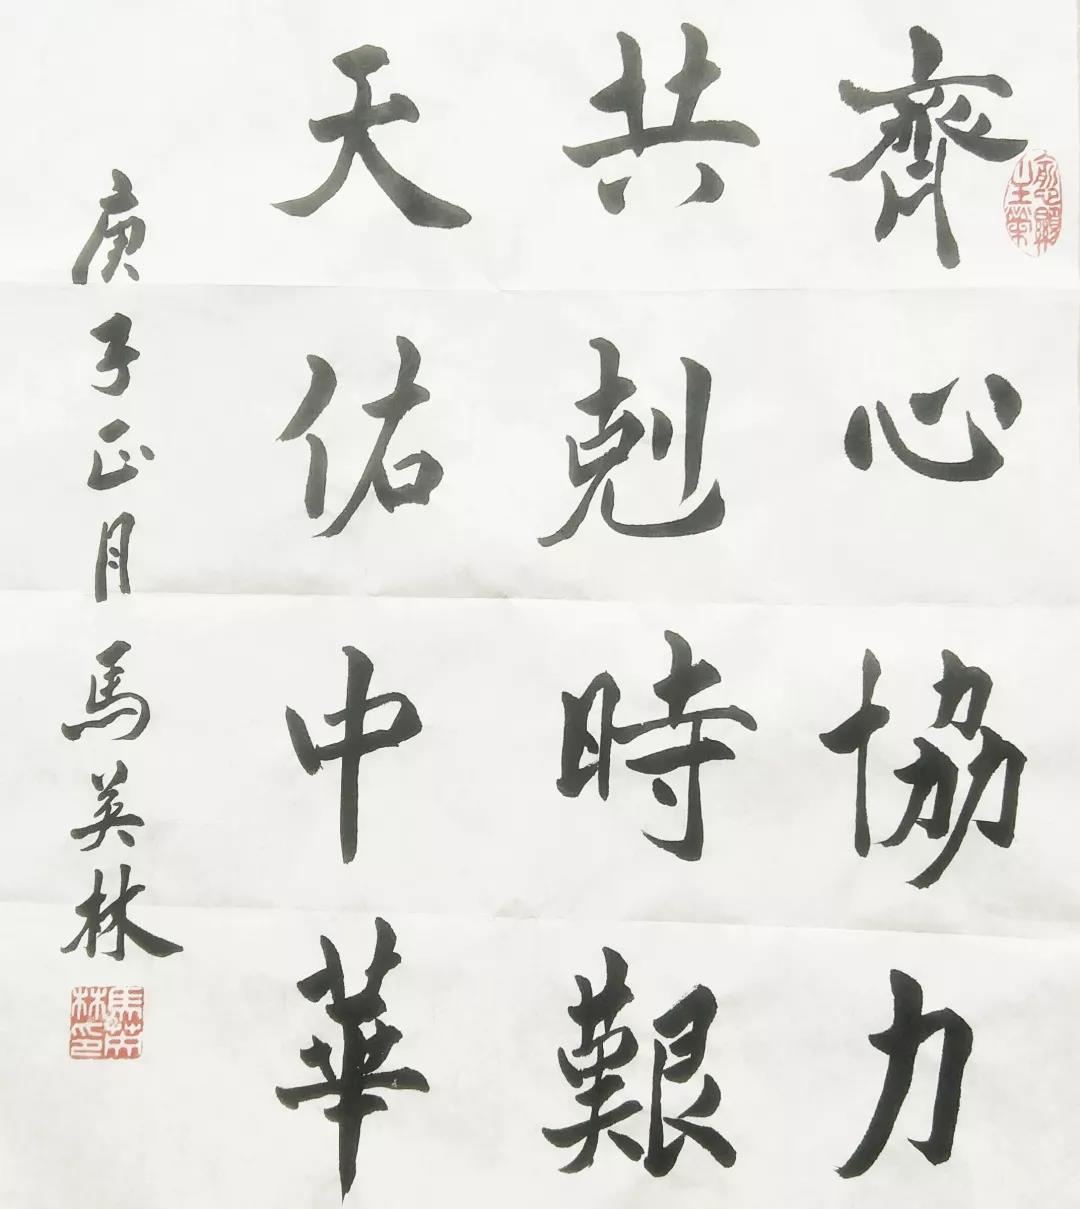 齊心協力
共剋時艱
天佑中華
庚子正月馬英林
馬英林印